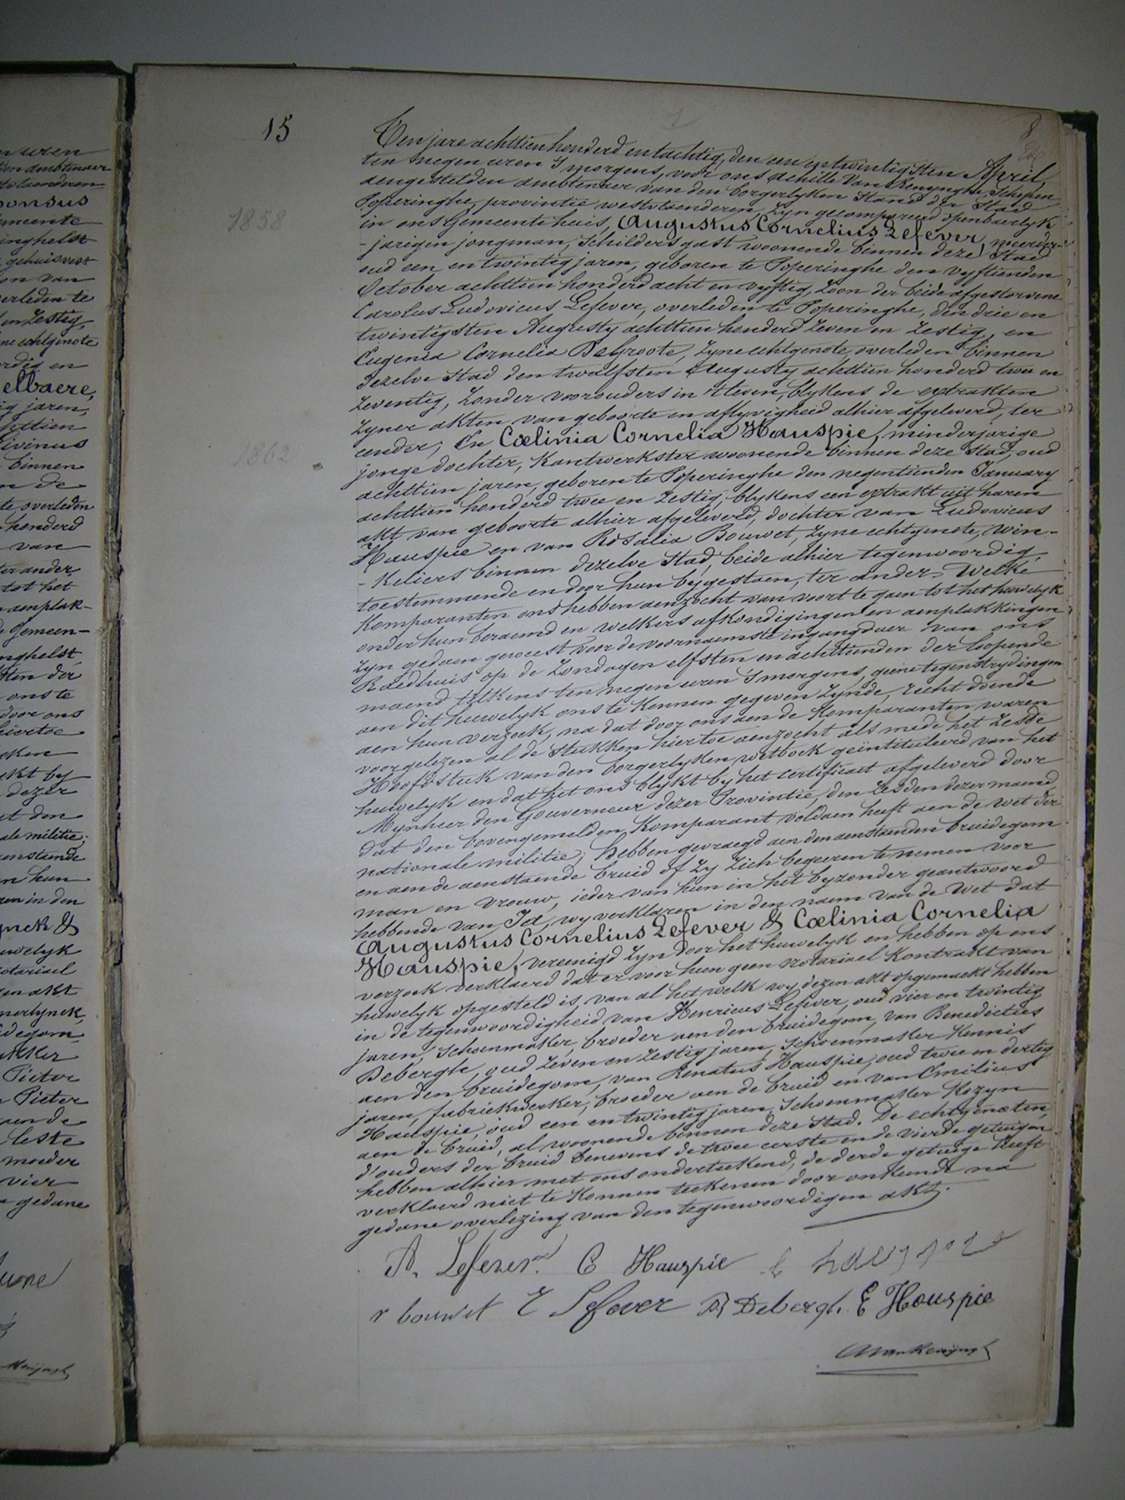 15
8
1858
1862
Ten jare achttien honderd en tachtig, den een en twintigsten April,
ten negen uren 's morgens, voor ons Achille Van Renynghe, Schepen
aengestelden ambtenaer van den borgerlyken Stand der Stad
Poperinghe, provintie westvlaenderen, zyn gecompareerd openbaerlyk
in ons Gemeente huis, Augustus Cornelius Lefever, meerder-
-jarigen jongman, Schilders gast woonende binnen deze Stad
oud een en twintig jaren, geboren te Poperinghe den vyftienden
October achttien honderd acht en vyftig, zoon der beide afgestorvene
Carolus Ludovicus Lefever, overleden te Poperinghe, den drie en
twintigsten Augusty achttien honderd zeven en zestig, en
Eugenia Cornelia DeGroote, zyne echtgenote, overleden binnen
dezelve Stad den twaelfsten Augusty achttien honderd twee en
zeventig, zonder voorouders in 't leven, blykens de extrakten
zyner akten van geboorte en aflyvigheid alhier afgeleverd, ter
eender; En Cœlinia Cornelia Hauspie, minderjarige
jonge dochter, Kantwerkster woonende binnen deze Stad, oud
achttien jaren, geboren te Poperinghe den negentienden January
achttien honderd twee en zestig, blykens een extrakt uit haren
akt van geboorte alhier afgeleverd, dochter van Ludovicus
Hauspie en van Rosalia Bouwet, zyne echtgenote, win-
-keliers binnen dezelve Stad, beide alhier tegenwoordig,
toestemmende en door hun bygestaen, ter ander. Welke
Komparanten ons hebben aenzocht van voort te gaen tot het huwelyk
onder hun beraemd en welkers afkondigingen en aenplakkingen
zyn gedaen geweest voor de voornaemste ingangdeur van ons
Raedhuis op de Zondagen elfsten en achttienden der loopende
maend telkens ten negen uren 's morgens, geene tegenstrydingen
aen dit huwelyk ons te kennen gegeven zynde, recht doende
aen hun verzoek, na dat door ons aen de Komparanten waren
voorgelezen al de Stukken hiertoe aenzocht als mede het zesde
Hoofdstuk van den borgerlyken wetboek geintituleerd van het
huwelyk en dat het ons blykt by het certificaet afgeleverd door
Mynheer den Gouverneur dezer Provintie, den zesden dezer maend
dat den bovengemelden Komparant voldaen heeft aen de wet der
nationale militie; Hebben gevraegd aen den aenstaenden bruidegom
en aen de aenstaende bruid of zy zich begeeren te nemen voor
man en vrouw, ieder van hun in het byzonder geantwoord
hebbende van Ja, wy verklaren in den naem van de wet dat
Augustus Cornelius Lefever & Cœlinia Cornelia
Hauspie, vereenigd zyn door het huwelyk en hebben op ons
verzoek verklaerd dat er voor hun geen notariael Kontrakt van
huwelyk opgesteld is, van al het welk wy dezen akt opgemaekt hebben
in de tegenwoordigheid van Henricus Lefever, oud vier en twintig
jaren, Schoenmaker, broeder aen den bruidegom, van Benedictus
Debergh, oud zeven en zestig jaren, Schoenmaker Kennis
aen den bruidegom, van Renatus Hauspie, oud twee en dertig
jaren, fabriekwerker, broeder aen de bruid en van Emilius
Hauspie, oud een en twintig jaren, Schoenmaker Kozyn
aen de bruid, al woonende binnen deze Stad. De echtgenoten,
d'ouders der bruid benevens de twee eerste en de vierde getuigen
hebben alhier met ons onderteekend, de derde getuige heeft
verklaerd niet te konnen teekenen door onkunde na
gedane overlezing van den tegenwoordigen akt.
A. Lefever C Hauspie
r bouwet Lefever B Debergh. E Hauspie
AVanRenynghe